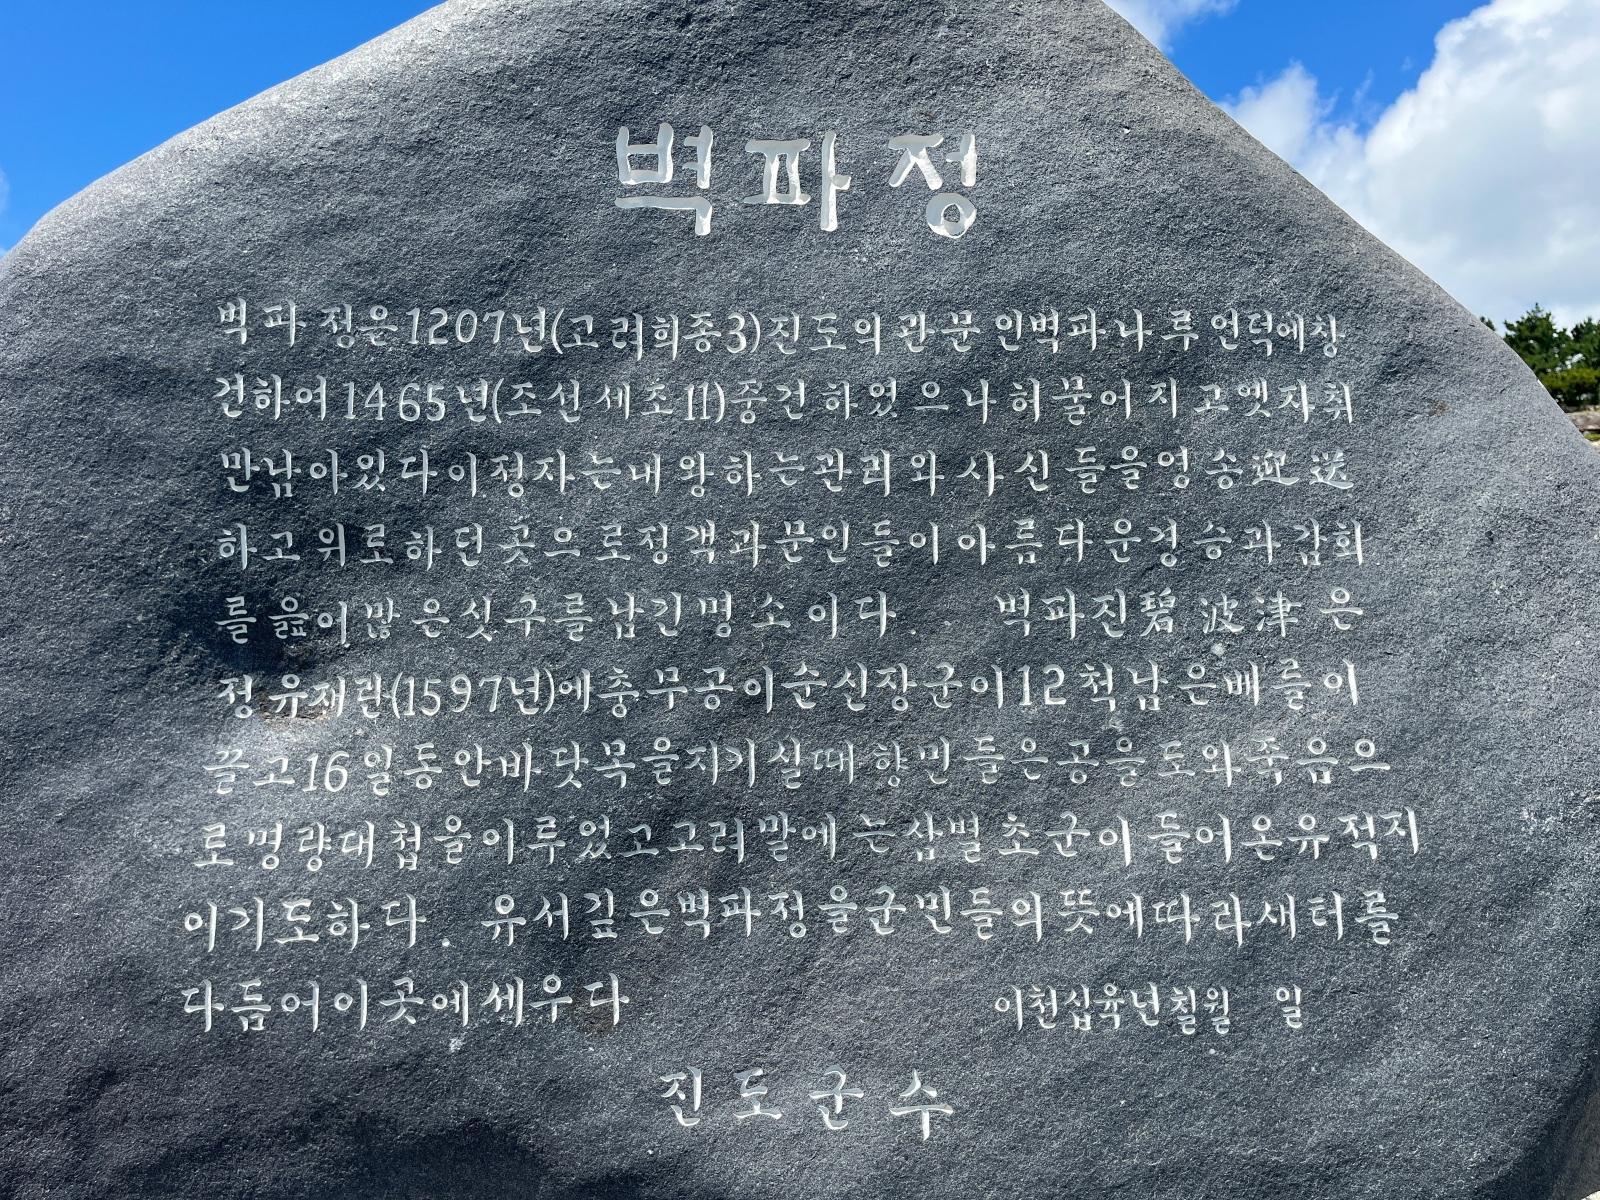 벽파정
벽파정은1207년(고려희종3)진도의관문인벽파나루언덕에창
건하여1465년(조선세조11)중건하였으나허물어지고옛자취
만남아있다이정자는내왕하는관리와사신들을영송迎送
하고위로하던곳으로정객과문인들이아름다운경승과감회
를읊어많은싯구를남긴명소이다. 벽파진碧波津은
정유재란(1597년)에충무공이순신장군이12척남은배를이
끌고16일동안바닷목을지키실때향민들은공을도와죽음으
로명량대첩을이루었고고려말에는삼별초군이들어온유적지
이기도하다. 유서깊은벽파정을군민들의뜻에따라새터를
다듬어이곳에세우다 이천십육년칠월 일
진도군수